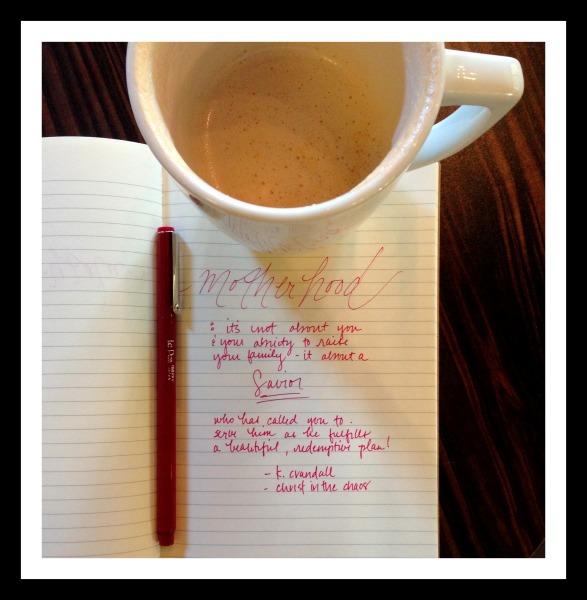 motherhood
: it's not about you
& your ability to raise
your family - it about a
Savior
who has called you to
serve him as he fulfills
a beautiful, redemptive plan!
- k. crandall
- christ in the chaos
Le Pen